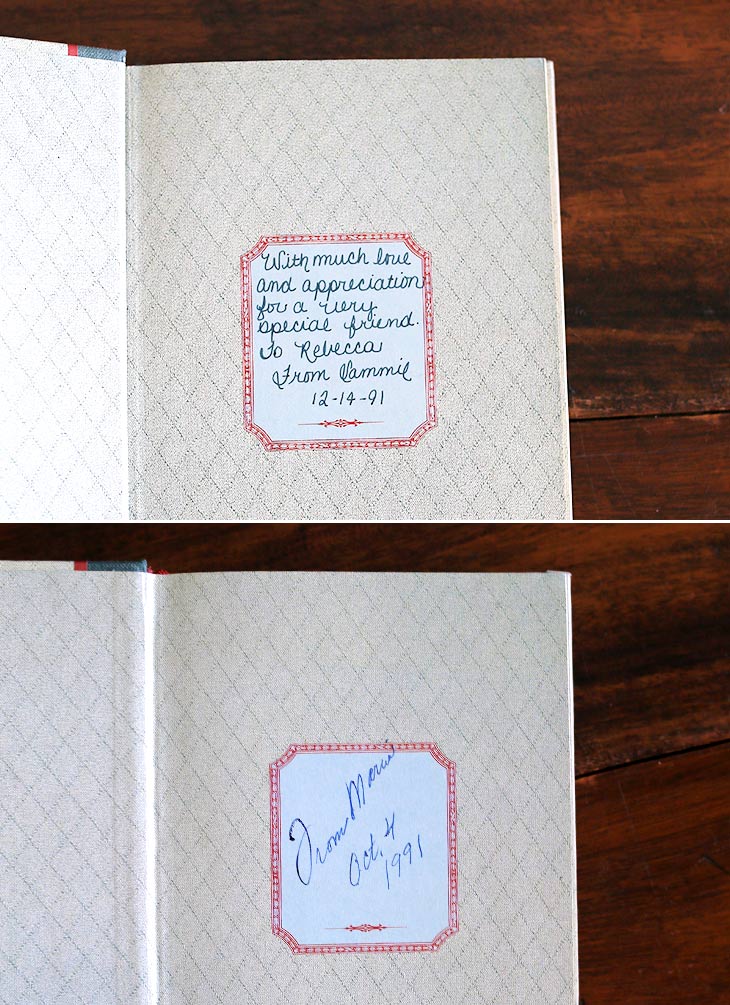 With much love
and appreciation
for a very
special friend.
To Rebecca
From Sammie
12-14-91
From
Oct. 4
1991